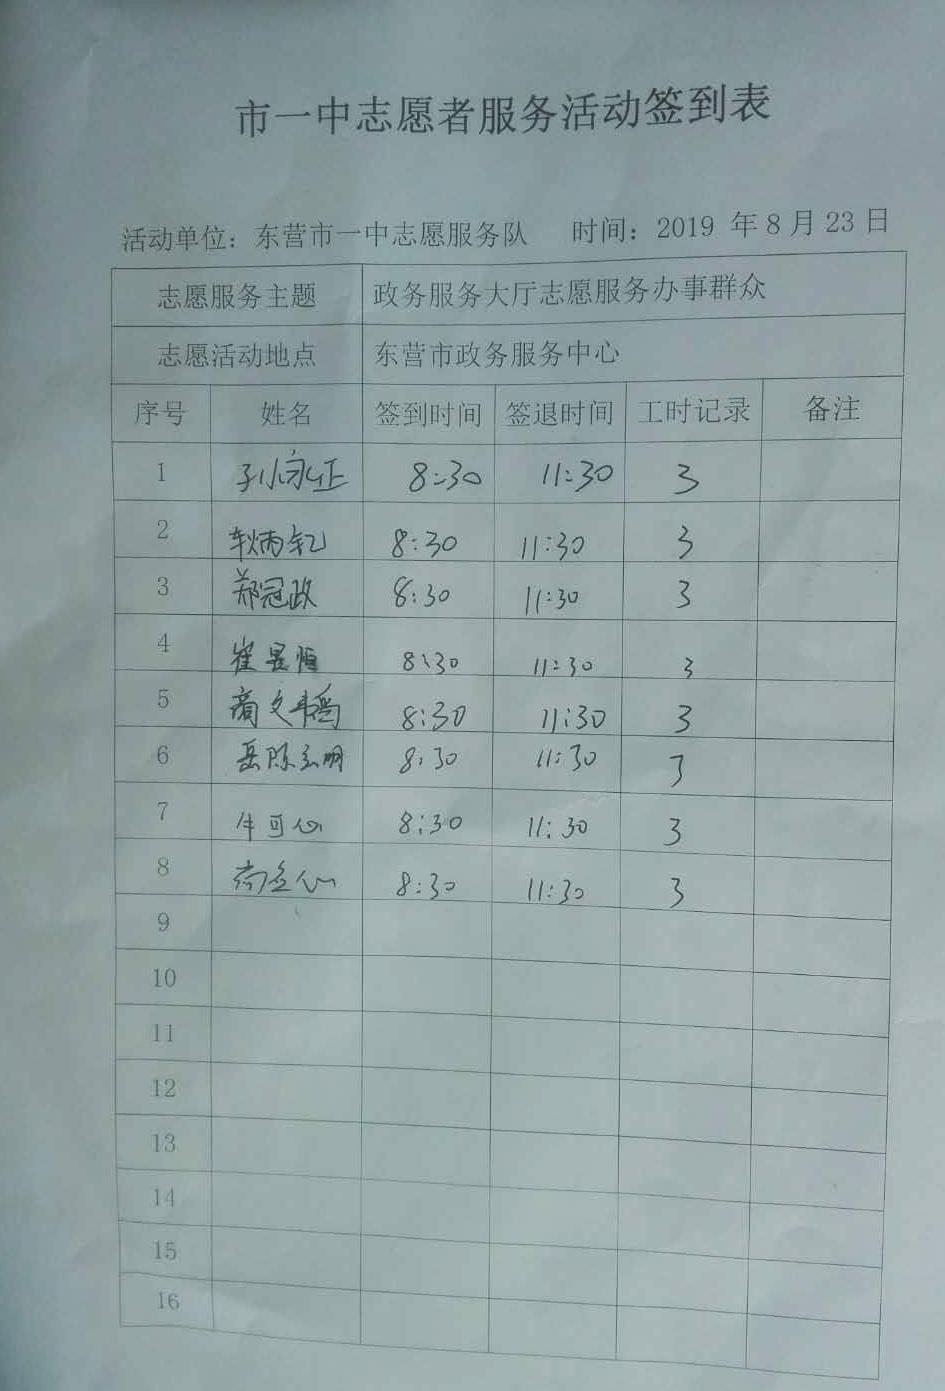 市一中志愿者服务活动签到表
活动单位：东营市一中志愿服务队 时间：2019 年 8 月 23 日
志愿服务主题 政务服务大厅志愿服务办事群众
志愿活动地点 东营市政务服务中心
序号 姓名 签到时间 签退时间 工时记录 备注
1 孙永正 8:30 11:30 3
2 8:30 11:30 3
3 郑冠政 8:30 11:30 3
4 崔昱恒 8:30 11:30 3
5 8:30 11:30 3
6 岳陈玄明 8:30 11:30 3
7 牛可心 8:30 11:30 3
8 8:30 11:30 3
9
10
11
12
13
14
15
16